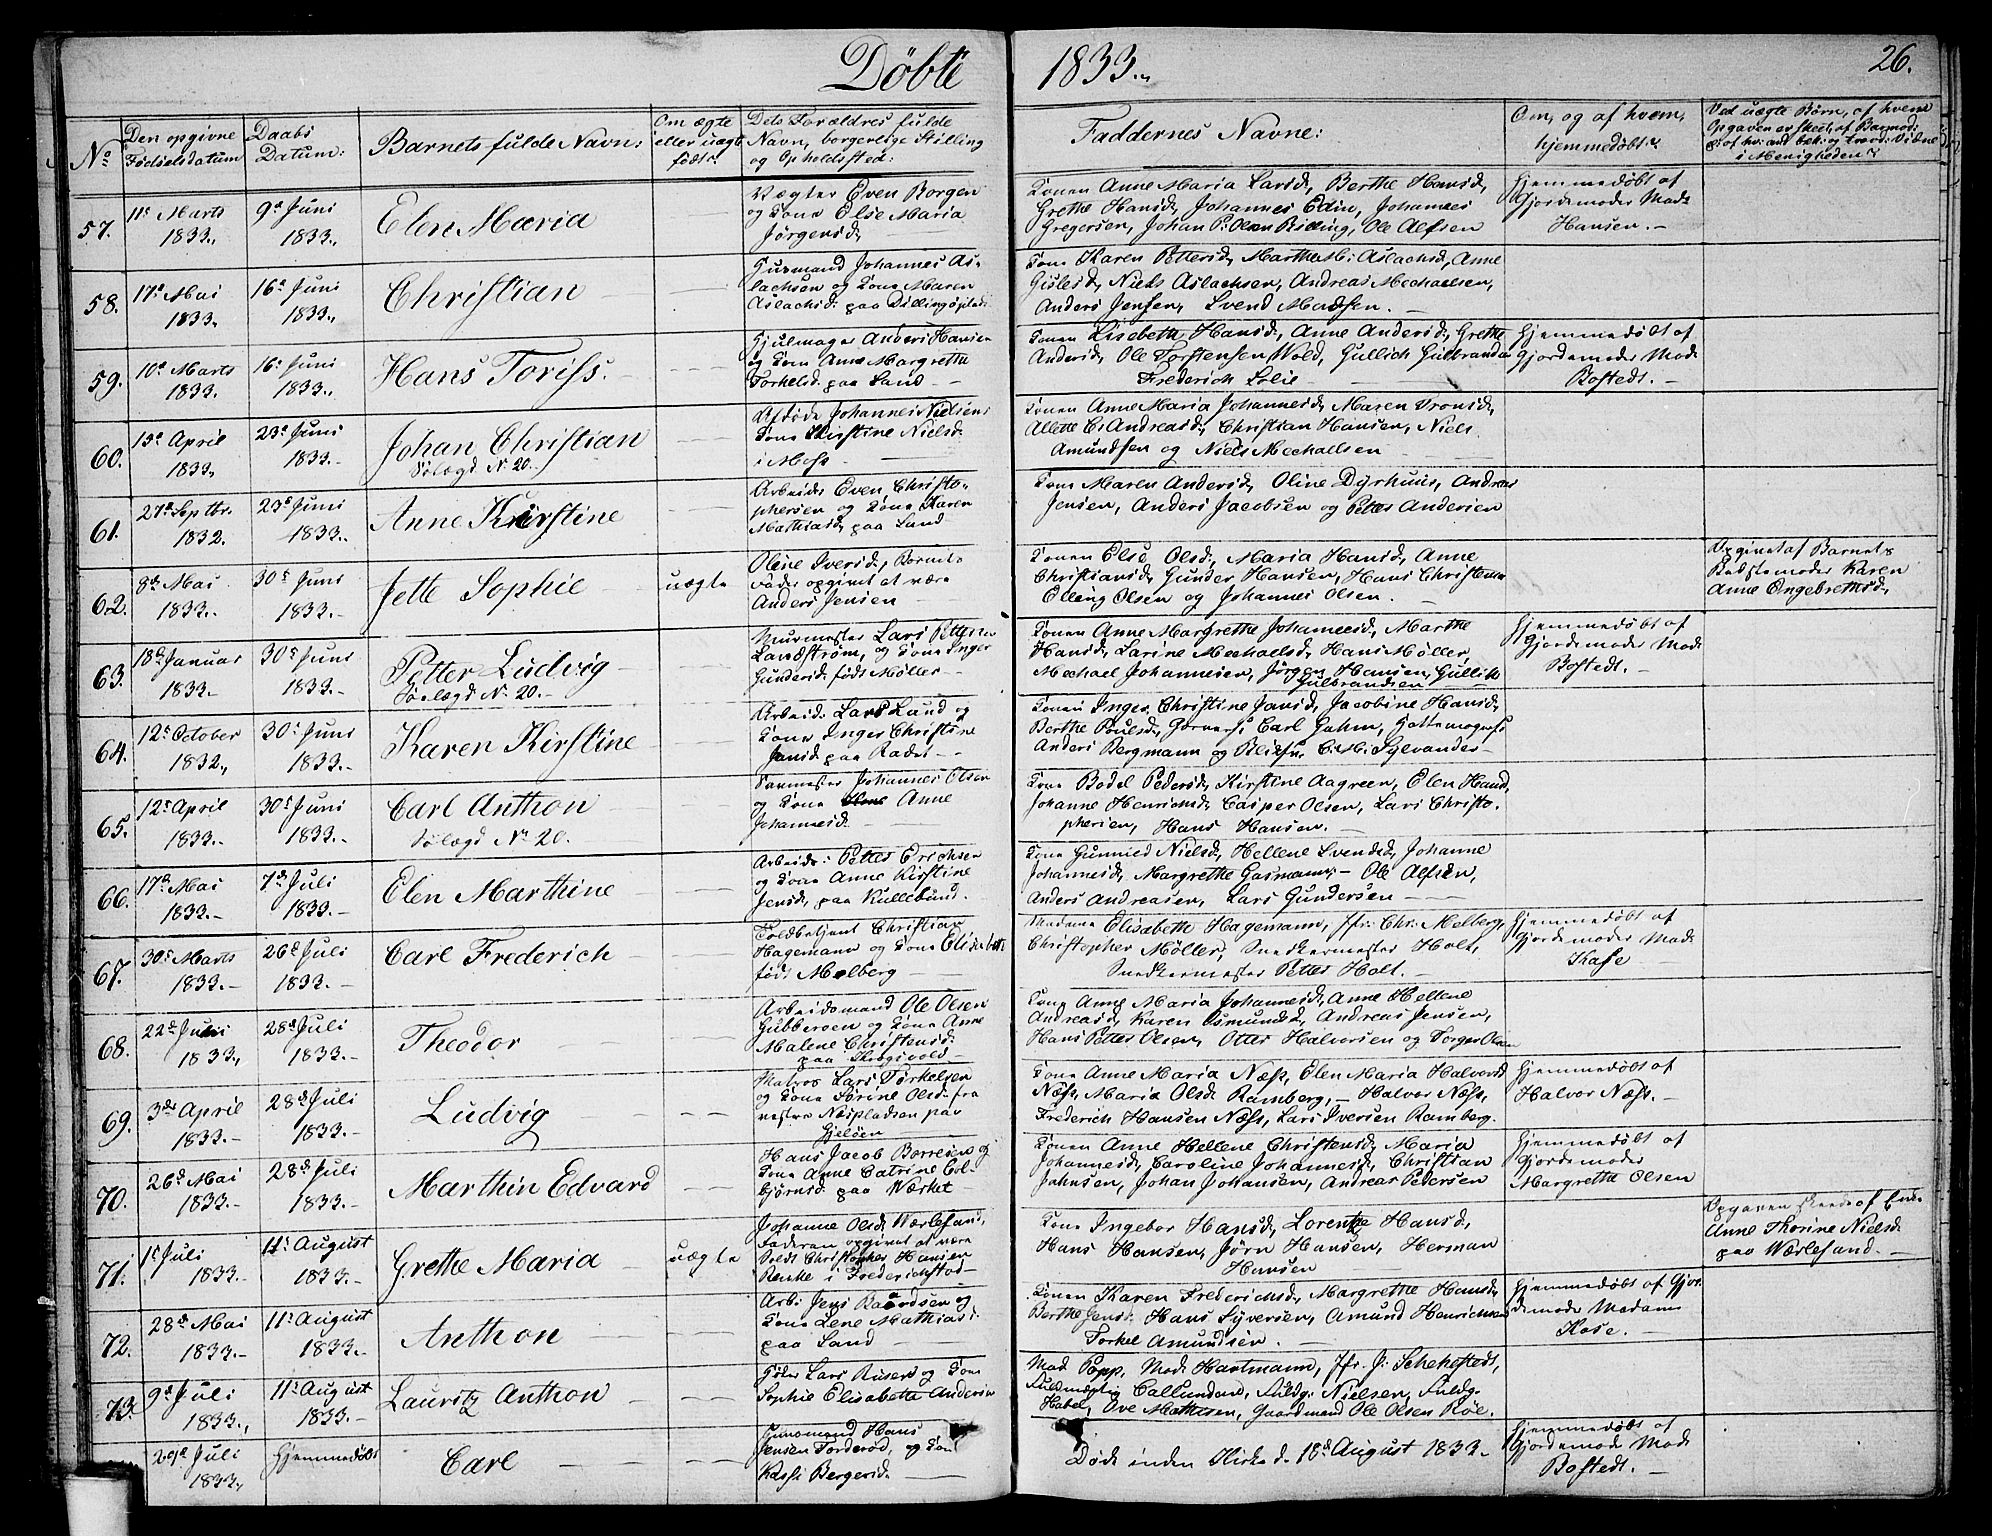 Döbte 1833. 26.
No
Den opgivne Födselsdatum
Daabs Datum:
Barnets fulde Navn:
Om ægte eller uægte födt:
Dets Forældres fulde Navn, borgerlige Stilling og Opholdsted:
Faddernes Navne:
Om, og af hvem, hjemmedöbt:
Ved uægte Börn, af hvem Opgaven er skeet, af Barnmod:
i Menigheden
57. 11te Marts 1833. 9de Juni 1833. Elen Maria
Vægter Even Borgen
og Kone Else Maria
Jörgensd.
Konen Anne Maria Larsd, Berthe Hansd,
Grethe Hansd, Johannes Edin, Johannes
Gregersen, Johan P. Olsen Billing, Ole Alfsen
Hjemmedöbt af
Gjordemoder Mad:
Hansen. —
58. 17de Mai 1833. 16de Juni 1833. Christian
Huusmand Johannes As-
lachsen og Kone Maren
Aslachsd: paa Dillingöplads
Kone Karen Pettersd, Marthe M: Aslachsd, Anne
Gislesd, Niels Aslachsen, Andreas Mechaelsen,
Anders Jensen, Svend Madsen. —
59. 10de Marts 1833. 16de Juni 1833. Hans Toriss.
Hjulmager Anders Hansen
og Kone Anne Margrethe
Torkelsd. paa Land —
Konen Lisebeth Hansd, Anne Andersd, Grethe
Andersd, Ole Torstensen Wold, Gullich Gulbrandsen
Frederich Lolie —
Hjemmedöbt af
Gjordemoder Mad:
Bostedt. —
60. 13de April 1833. 23de Juni 1833. Johan Christian
Sölægd No 20.
Afdöde Johannes Nielsens
Kone Kirstine Nielsd.
i Moss —
Konen Anne Maria Johannesd, Maren Tronsd,
Allette C. Andreasd, Christian Hansen, Niels
Amundsen og Niels Mechaelsen —
61. 27de Septbr. 1832. 23de Juni 1833. Anne Kirstine
Arbeids Even Christo-
phersen og Kone Karen
Mathiasd, paa Land —
Kone Maren Andersd, Oline Dyrhuus, Andreas
Jensen, Anders Jacobsen og Petter Andersen
62. 8de Mai 1833. 30te Juni 1833. Jette Sophie uægte
Oline Iversd, Barnets
Fader opgivet at være
Anders Jensen —
Konen Else Olsd, Maria Hansd, Anne
Christiansd, Gunder Hansen, Hans Christensen
Elling Olsen og Johannes Olsen. —
Opgivet af Barnets
Bedstemoder Karen
Anne Engebrethsd,
63. 18de Januar 1833. 30te Juni 1833. Petter Ludvig
Sölægd No 20. —
Murmester Lars Petters
Landström, og Kone Inger
Gundersd, födt Möller —
Konen Anne Margrethe Johannesd, Marthe
Hansd, Larine Mechaelsd, Hans Möller
Mechael Johannesen, Jörgen Hansen, Gullik
Gulbrandsen
Hjemmedöbt af
Gjordemoder Mad
Bostedt. —
64. 12te October 1832. 30te Juni 1833. Karen Kirstine
Arbeid: Lars Lund og
Kone Inger Christine
Jansd paa Radet —
Konen Inger Christine Jansd, Jacobine Hansd,
Berthe Poulsd, Garver S. Carl Gahm, Hattemagers
Anders Bergmann og C: M: Sylvander —
65. 12te April 1833. 30te Juni 1833. Carl Anthon
Sölægd No 20.
Johannes Olsen
og Kone Anne
Johannesd. —
Kone Bodel Pedersd, Kirstine Aagreen, Elen Hansd,
Johanne Henrichsd, Casper Olsen, Lars Christo-
phersen, Hans Hansen. —
66. 17de Mai 1833. — 7de Juli 1833. — Elen Marthine
Arbeids: Petter Erichsen
og Kone Anne Kirstine
Jensd, paa Kullebund. —
Kone Gunnild Nielsd, Hellene Svendsd, Johanne
Johannesd, Margrethe Gasmann, — Ole Alfsen,
Anders Andreasen, Lars Gundersen —
67. 30te Marts 1833. — 26de Juli 1833. — Carl Frederich
Toldbetjent Christian
Hagemann og Kone Elisabeth
födt Melberg —
Madame Elisabeth Hagemann, Jfr. Chr: Melberg,
Christopher Möller, Snedkermester Holt,
Snedkermester Petter Holt. —
Hjemmedöbt af
Gjordemoder Mad:
Kase —
68. 22de Juni 1833., 28de Juli 1833. — Theodor
Arbeidsmand Ole Olsen
Gubberoen og Kone Anne
Malene Christensd:
paa Krogsvold —
Kone Anne Maria Johannesd, Anne Hellene
Andreasd, Karen Osmundsd, Andreas Jensen,
Hans Petter Olsen, Otter Halvorsen og Torger Olsen
69. 3die April 1833. — 28de Juli 1833. — Ludvig
Matros Lars Torkelsen
og Kone Sörine Olsd. fra
vestre Næspladsen paa
Gjelöen
Kone Anne Maria Næss, Elen Maria Halvorsd
Næss, Maria Olsd Ramberg, — Halvor Næss,
Frederich Hansen Næss, Lars Iversen Ramberg.
Hjemmedöbt af
Halvor Næss. —
70. 26de Mai 1833. — 28de Juli 1833. — Marthin Edvard
Hans Jacob Borresen og
Kone Anne Catrine Col-
björnsd. paa Værket
Konen Anne Hellene Christensd, Maria
Johannesd, Caroline Johannesd, Christian
Johnsen, Johan Johansen, Andreas Pedersen
Hjemmedöbt af
Gjordemoder
Margrethe Olsen
71. 1te Juli 1833. — 11te August 1833. — Grethe Maria uægte
Johanne Olsd Wærlesand,
Faderen opgivet at være
Christopher Hansen
Renke i Frederichstad —
Kone Ingebor Hansd, Lorentze Hansd,
Hans Hansen, Jörn Hansen, Herman
Hansen
Opgaven skeede af Enke
Anne Thorine Nielsd
paa Wærlesand. —
72. 28de Mai 1833. — 11te August 1833. — Anthon
Arb: Jens Baardsen og
Kone Lene Mathiasd:
paa Land —
Konen Karen Frederichsd, Margrethe Hansd,
Berthe Jensd: Hans Syversen, Amund Henrichsen
Torkel Amundsen. —
Hjemmedöbt af Gjor-
demoder Madame
Kose. —
73. 9de Juli 1833., 11te August 1833. — Lauritz Anthon
Lars Russen og Kone
Sophie Elisabeth Andersen
Mad Popp, Mad: Hartmann, Jfr. J. Schehestedt,
Fuldmægtig Callundan, Fuldm: Nielsen, Fuldg.
Habel, Ove Mathesen, Gaardmand Ole Olsen Röe.
29de Juli 1833., Hjemmedöbt Carl
Huusmand Hans
Jensen Torderöd, og Kone
Kasse Bergersd. —
Döde inden Kirked. 18de August 1833 —
Hjemmedöbt af
Gjordemode Mad:
Bostedt. —